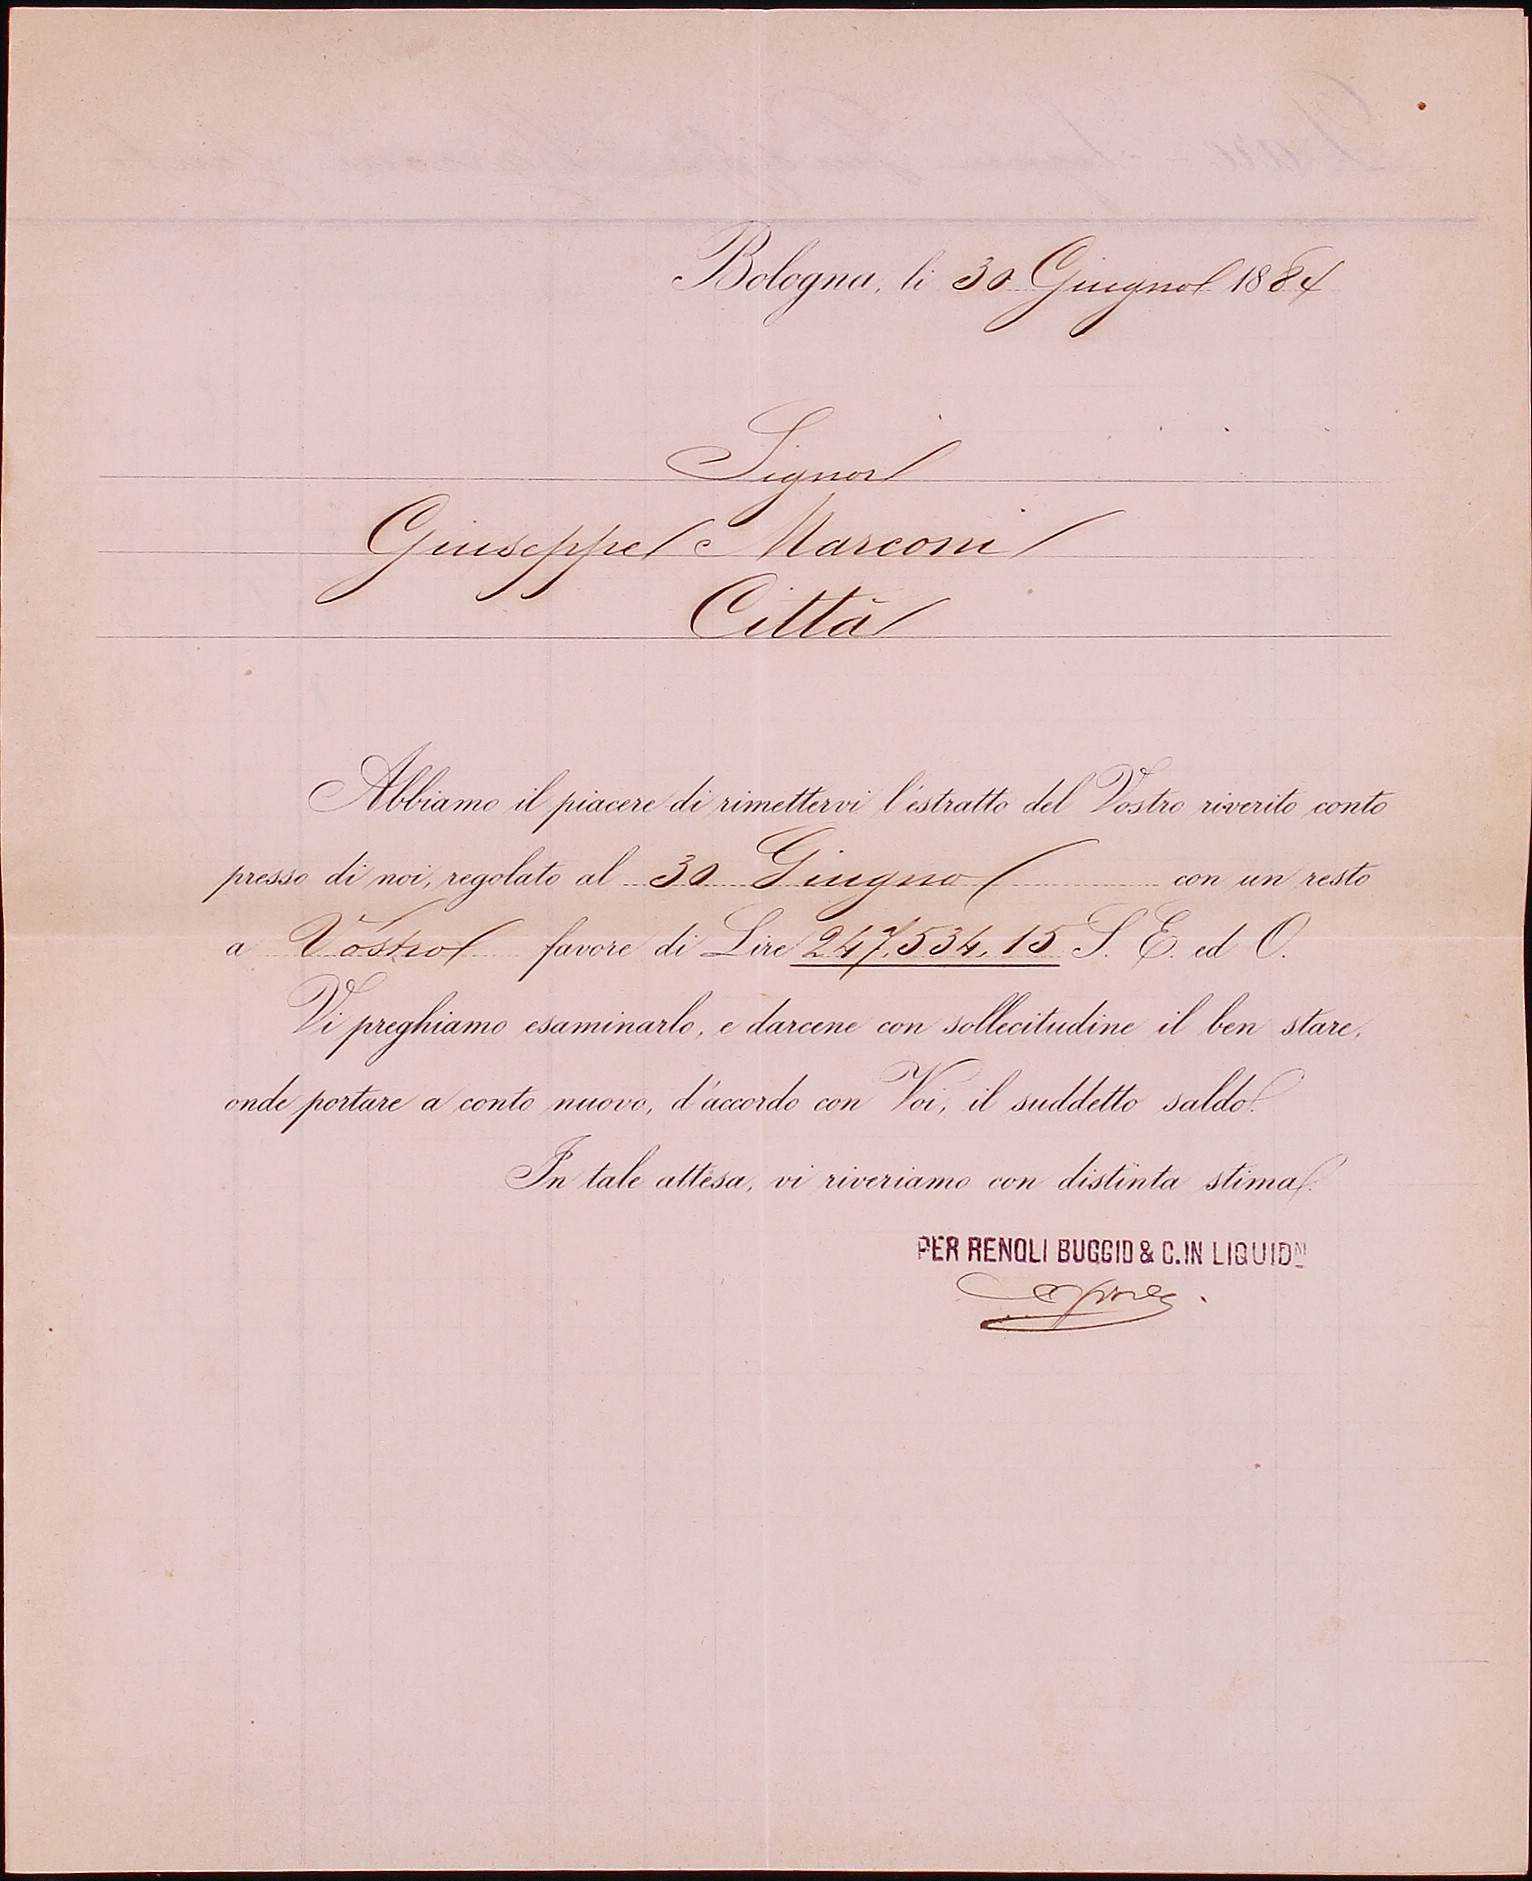 Bologna, li 30 Giugno 1884
Signor
Giuseppe Marconi
Città
Abbiamo il piacere di rimettervi l'estratto del Vostro riverito conto
presso di noi, regolato al 30 Giugno con un resto
a Vostro favore di Lire 247,534,15 S. E. ed O.
Vi preghiamo esaminarlo, e darcene con sollecitudine il ben stare,
onde portare a conto nuovo, d'accordo con Voi, il suddetto saldo.
In tale attesa, vi riveriamo con distinta stima.
PER RENOLI BUGGIO & C. IN LIQUIDN